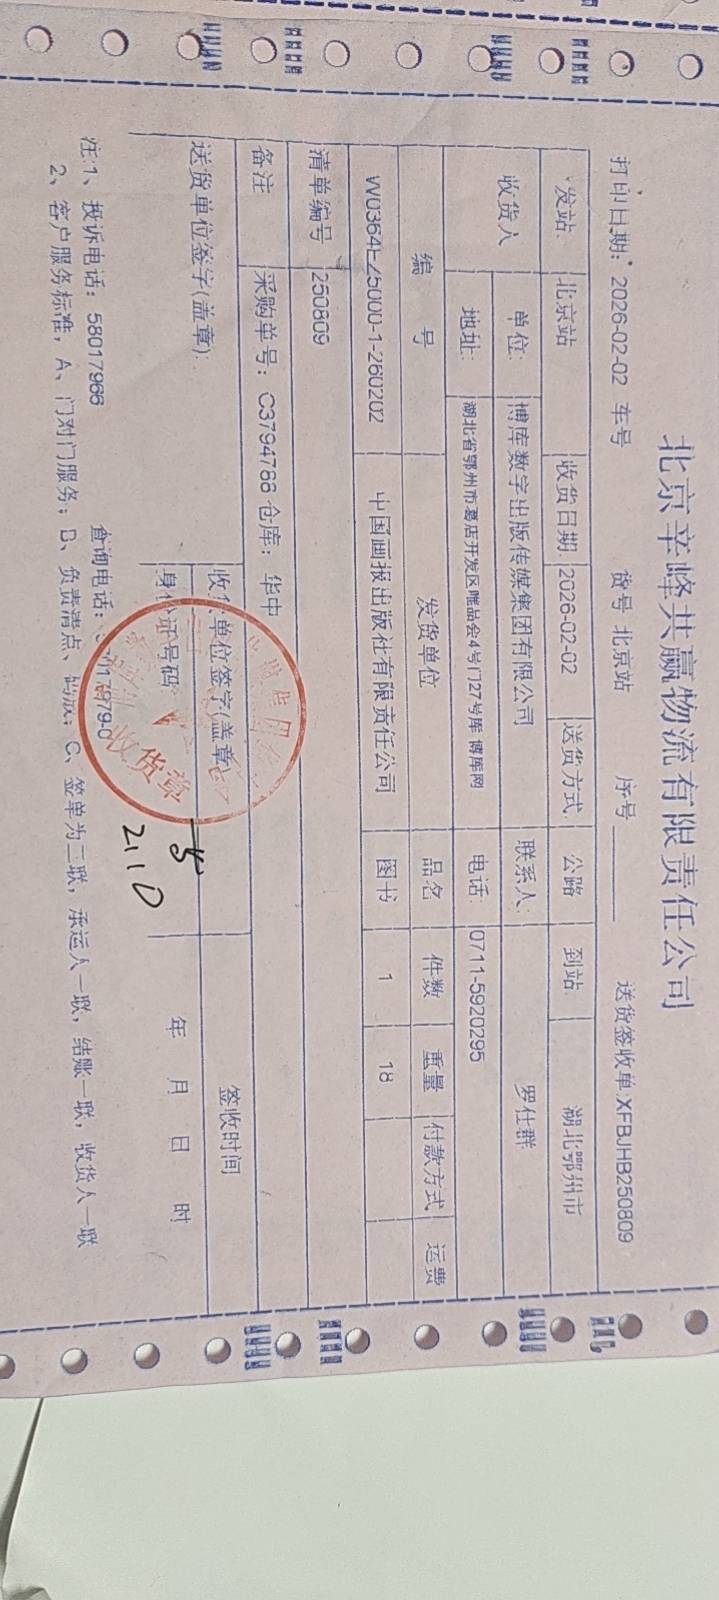 北京辛峰共赢物流有限责任公司
打印日期: 2026-02-02 车号 货号 北京站 序号 送货签收单:XFBJHB250809
发站: 北京站 收货日期: 2026-02-02 送货方式: 公路 到站: 湖北鄂州市
收货人 单位: 博库数字出版传媒集团有限公司 联系人: 罗仕群
地址: 湖北省鄂州市葛店开发区唯品会4号门27号库 博库网 电话: 0711-5920295
编 号 发货单位 品名 件数 重量 付款方式 运费
中国画报出版社有限责任公司 图书 1 18
清单编号 250809
备注 采购单号: C3794786 仓库: 华中
送货单位签字(盖章): 收货单位签字(盖章) 签收时间
身份证号码 年 月 日 时
收货章
2110
注:1、投诉电话: 58017966 查询电话:
2、客户服务标准, A、门对门服务; B、负责清点、码放; C、签单为三联, 承运人一联, 结账一联, 收货人一联